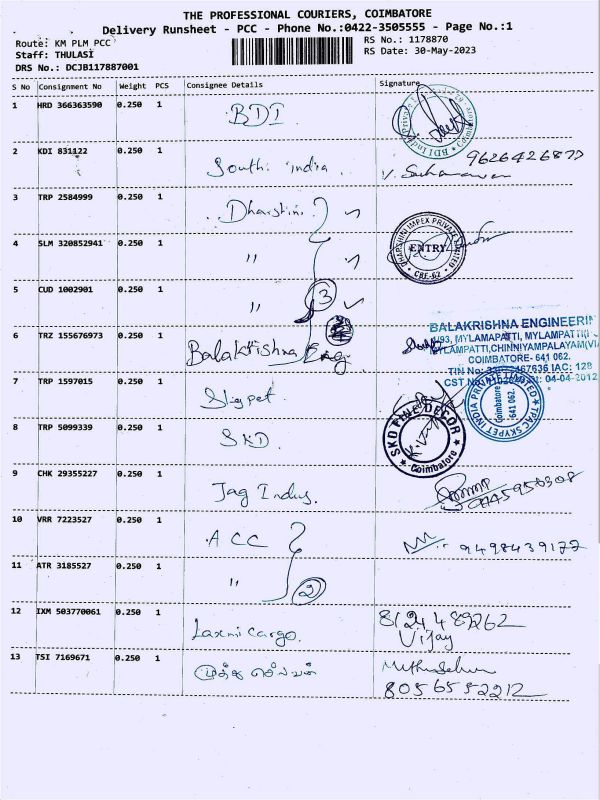 THE PROFESSIONAL COURIERS, COIMBATORE
Delivery Runsheet - PCC - Phone No.:0422-3505555 - Page No.:1
Route: KM PLM PCC
RS No.: 1178870
Staff: THULASI
RS Date: 30-May-2023
DRS No.: DCJB117887001
S No Consignment No Weight PCS Consignee Details Signature
1 HRD 366363590 0.250 1 BDI
2 KDI 831122 0.250 1 South india
9626426877
3 TRP 2584999 0.250 1 Dharshini
DHARSHINI IMPEX PRIVATE LIMITED
ENTRY
CBE-62
4 SLM 320852941 0.250 1 "
5 CUD 1002901 0.250 1 "
3
6 TRZ 155676973 0.250 1 Balakrishna Eng
BALAKRISHNA ENGINEERIN
MYLAMAPATTI, MYLAMPATTI
MYLAMPATTI,CHINNIYAMPALAYAM(VIA
COIMBATORE- 641 062.
04-04-2012
7 TRP 1597015 0.250 1 Skypet
TPAC SKYPET INDIA PRIVATE LIMITED
Coimbatore
641 062.
8 TRP 5099339 0.250 1 SKD
SKD FINE DECOR
Coimbatore
9 CHK 29355227 0.250 1 Jag Indus.
10 VRR 7223527 0.250 1 ACC
9498439177
11 ATR 3185527 0.250 1 "
2
12 IXM 503770061 0.250 1 Laxmi Cargo.
8124489262
Vijay
13 TSI 7169671 0.250 1 முத்து செல்வன்
8056552212